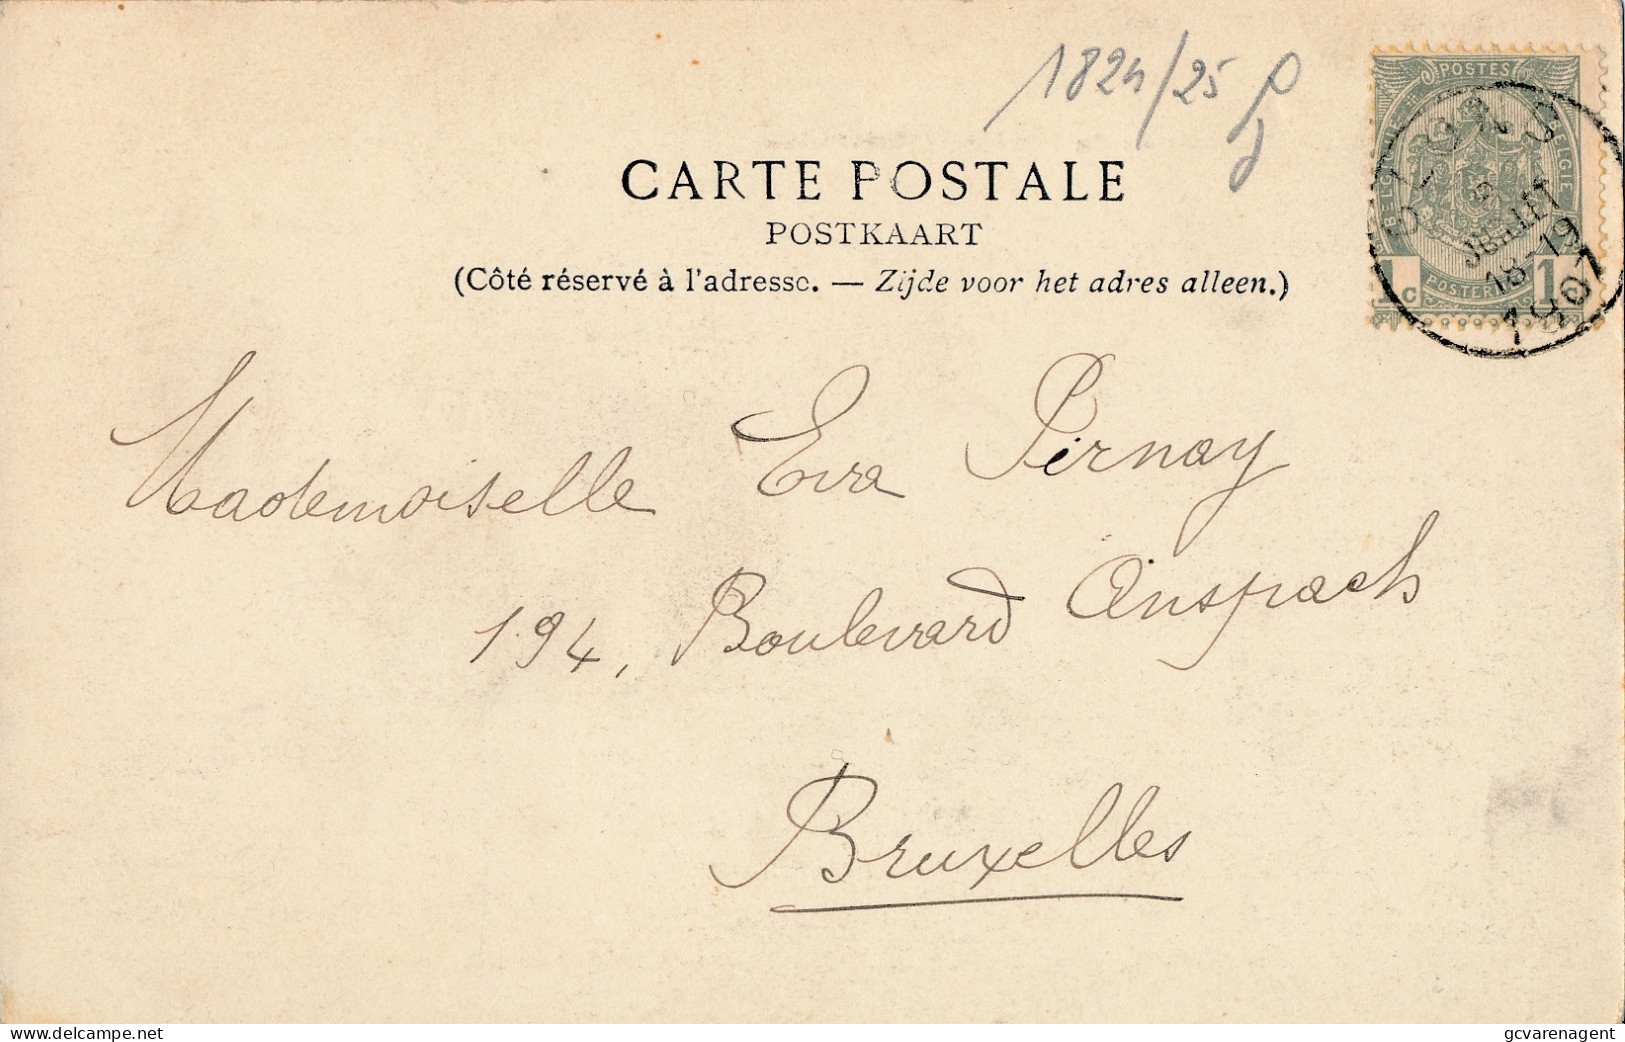 1824/25
CARTE POSTALE
POSTKAART
(Côté réservé à l'adresse. — Zijde voor het adres alleen.)
POSTES
BELGIQUE
BELGIE
POSTERIJEN
1c
1
JUILLET
18-19
1907
Mademoiselle Eva Pirnay
194, Boulevard Anspach
Bruxelles
www.delcampe.net
gcvarenagent